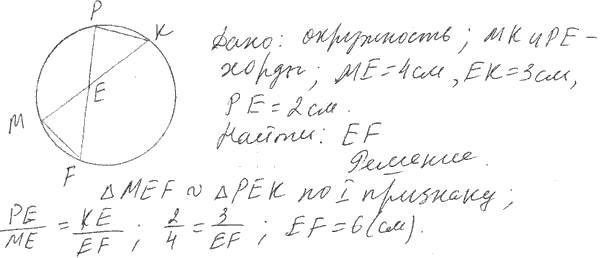 P
K
E
M
F
Дано: окружность; MK и PE –
хорды; ME = 4 см, EK = 3 см,
PE = 2 см.
Найти: EF
Решение.
△MEF ∾ △PEK по I признаку;
PE/ME = KE/EF ; 2/4 = 3/EF ; EF = 6 (см).